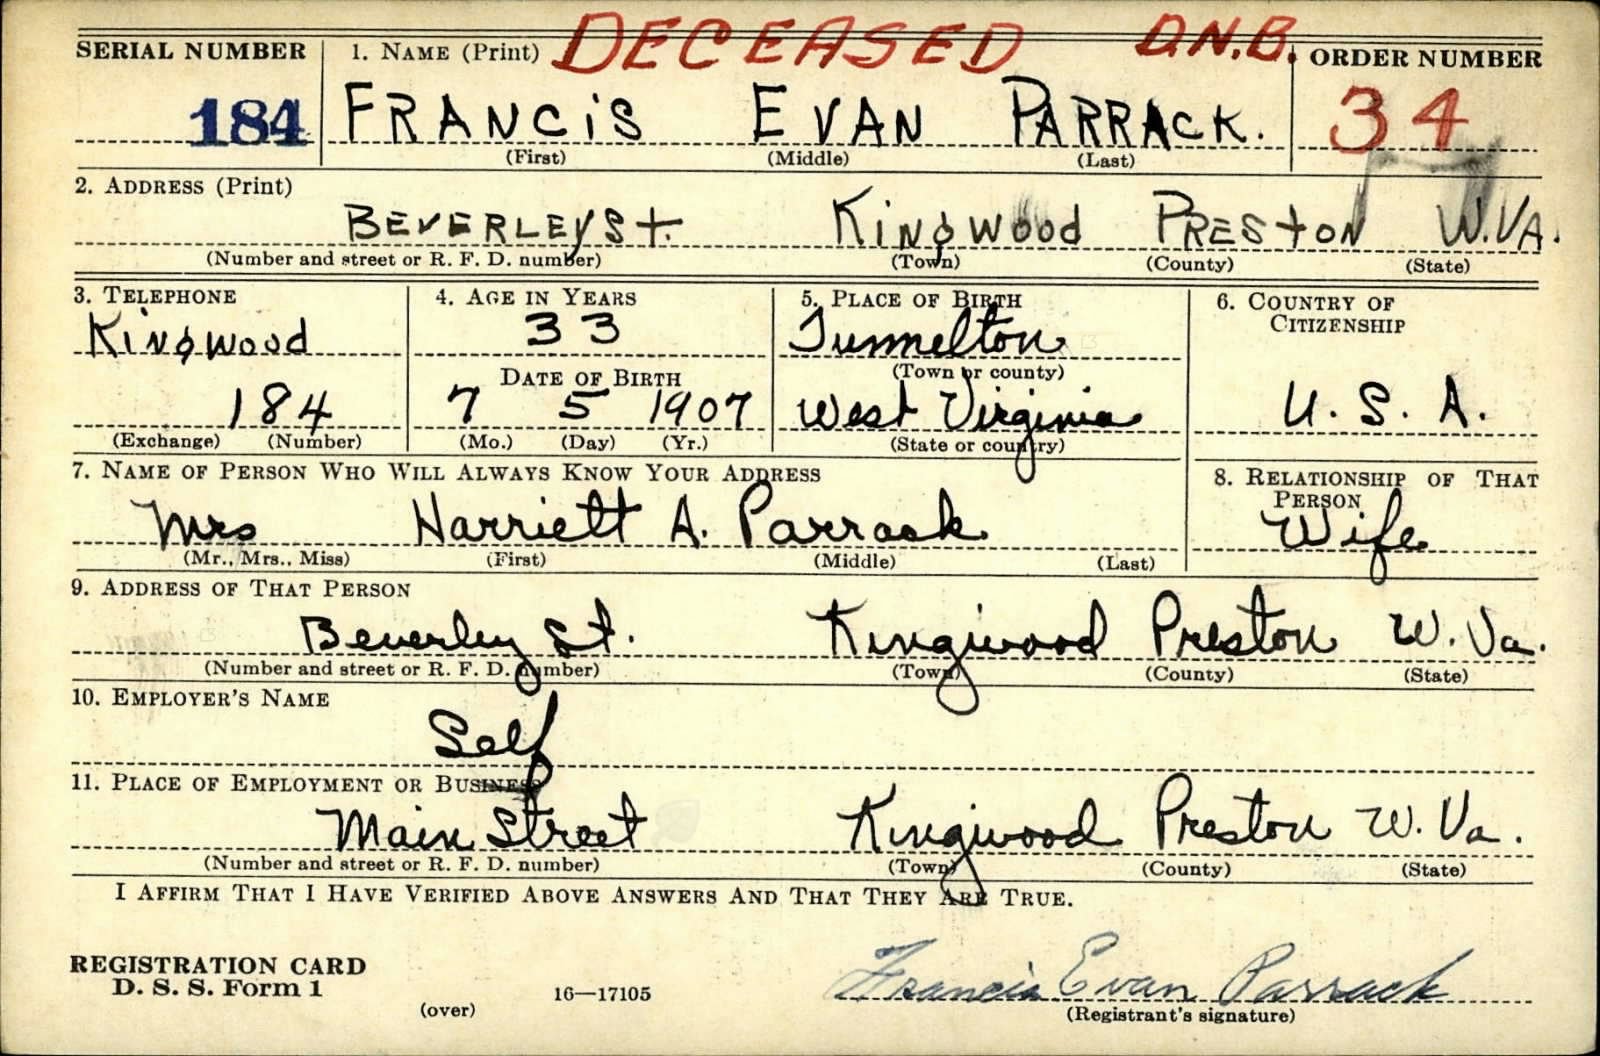 DECEASED D.N.B.
SERIAL NUMBER 1. NAME (Print) ORDER NUMBER
184 FRANCIS EVAN PARRACK. 34
(First) (Middle) (Last)
2. ADDRESS (Print)
BEVERLEY St. KINGWOOD PRESTON W.VA.
(Number and street or R. F. D. number) (Town) (County) (State)
3. TELEPHONE 4. AGE IN YEARS 5. PLACE OF BIRTH 6. COUNTRY OF CITIZENSHIP
Kingwood 33 Tunnelton
(Town or county)
DATE OF BIRTH
184 7 5 1907 West Virginia U. S. A.
(Exchange) (Number) (Mo.) (Day) (Yr.) (State or country)
7. NAME OF PERSON WHO WILL ALWAYS KNOW YOUR ADDRESS 8. RELATIONSHIP OF THAT PERSON
Mrs Harriett A. Parrack Wife
(Mr., Mrs., Miss) (First) (Middle) (Last)
9. ADDRESS OF THAT PERSON
Beverley St. Kingwood Preston W. Va.
(Number and street or R. F. D. number) (Town) (County) (State)
10. EMPLOYER'S NAME
Self
11. PLACE OF EMPLOYMENT OR BUSINESS
Main Street Kingwood Preston W. Va.
(Number and street or R. F. D. number) (Town) (County) (State)
I AFFIRM THAT I HAVE VERIFIED ABOVE ANSWERS AND THAT THEY ARE TRUE.
REGISTRATION CARD
D. S. S. Form 1 (over) 16—17105 Francis Evan Parrack
(Registrant's signature)